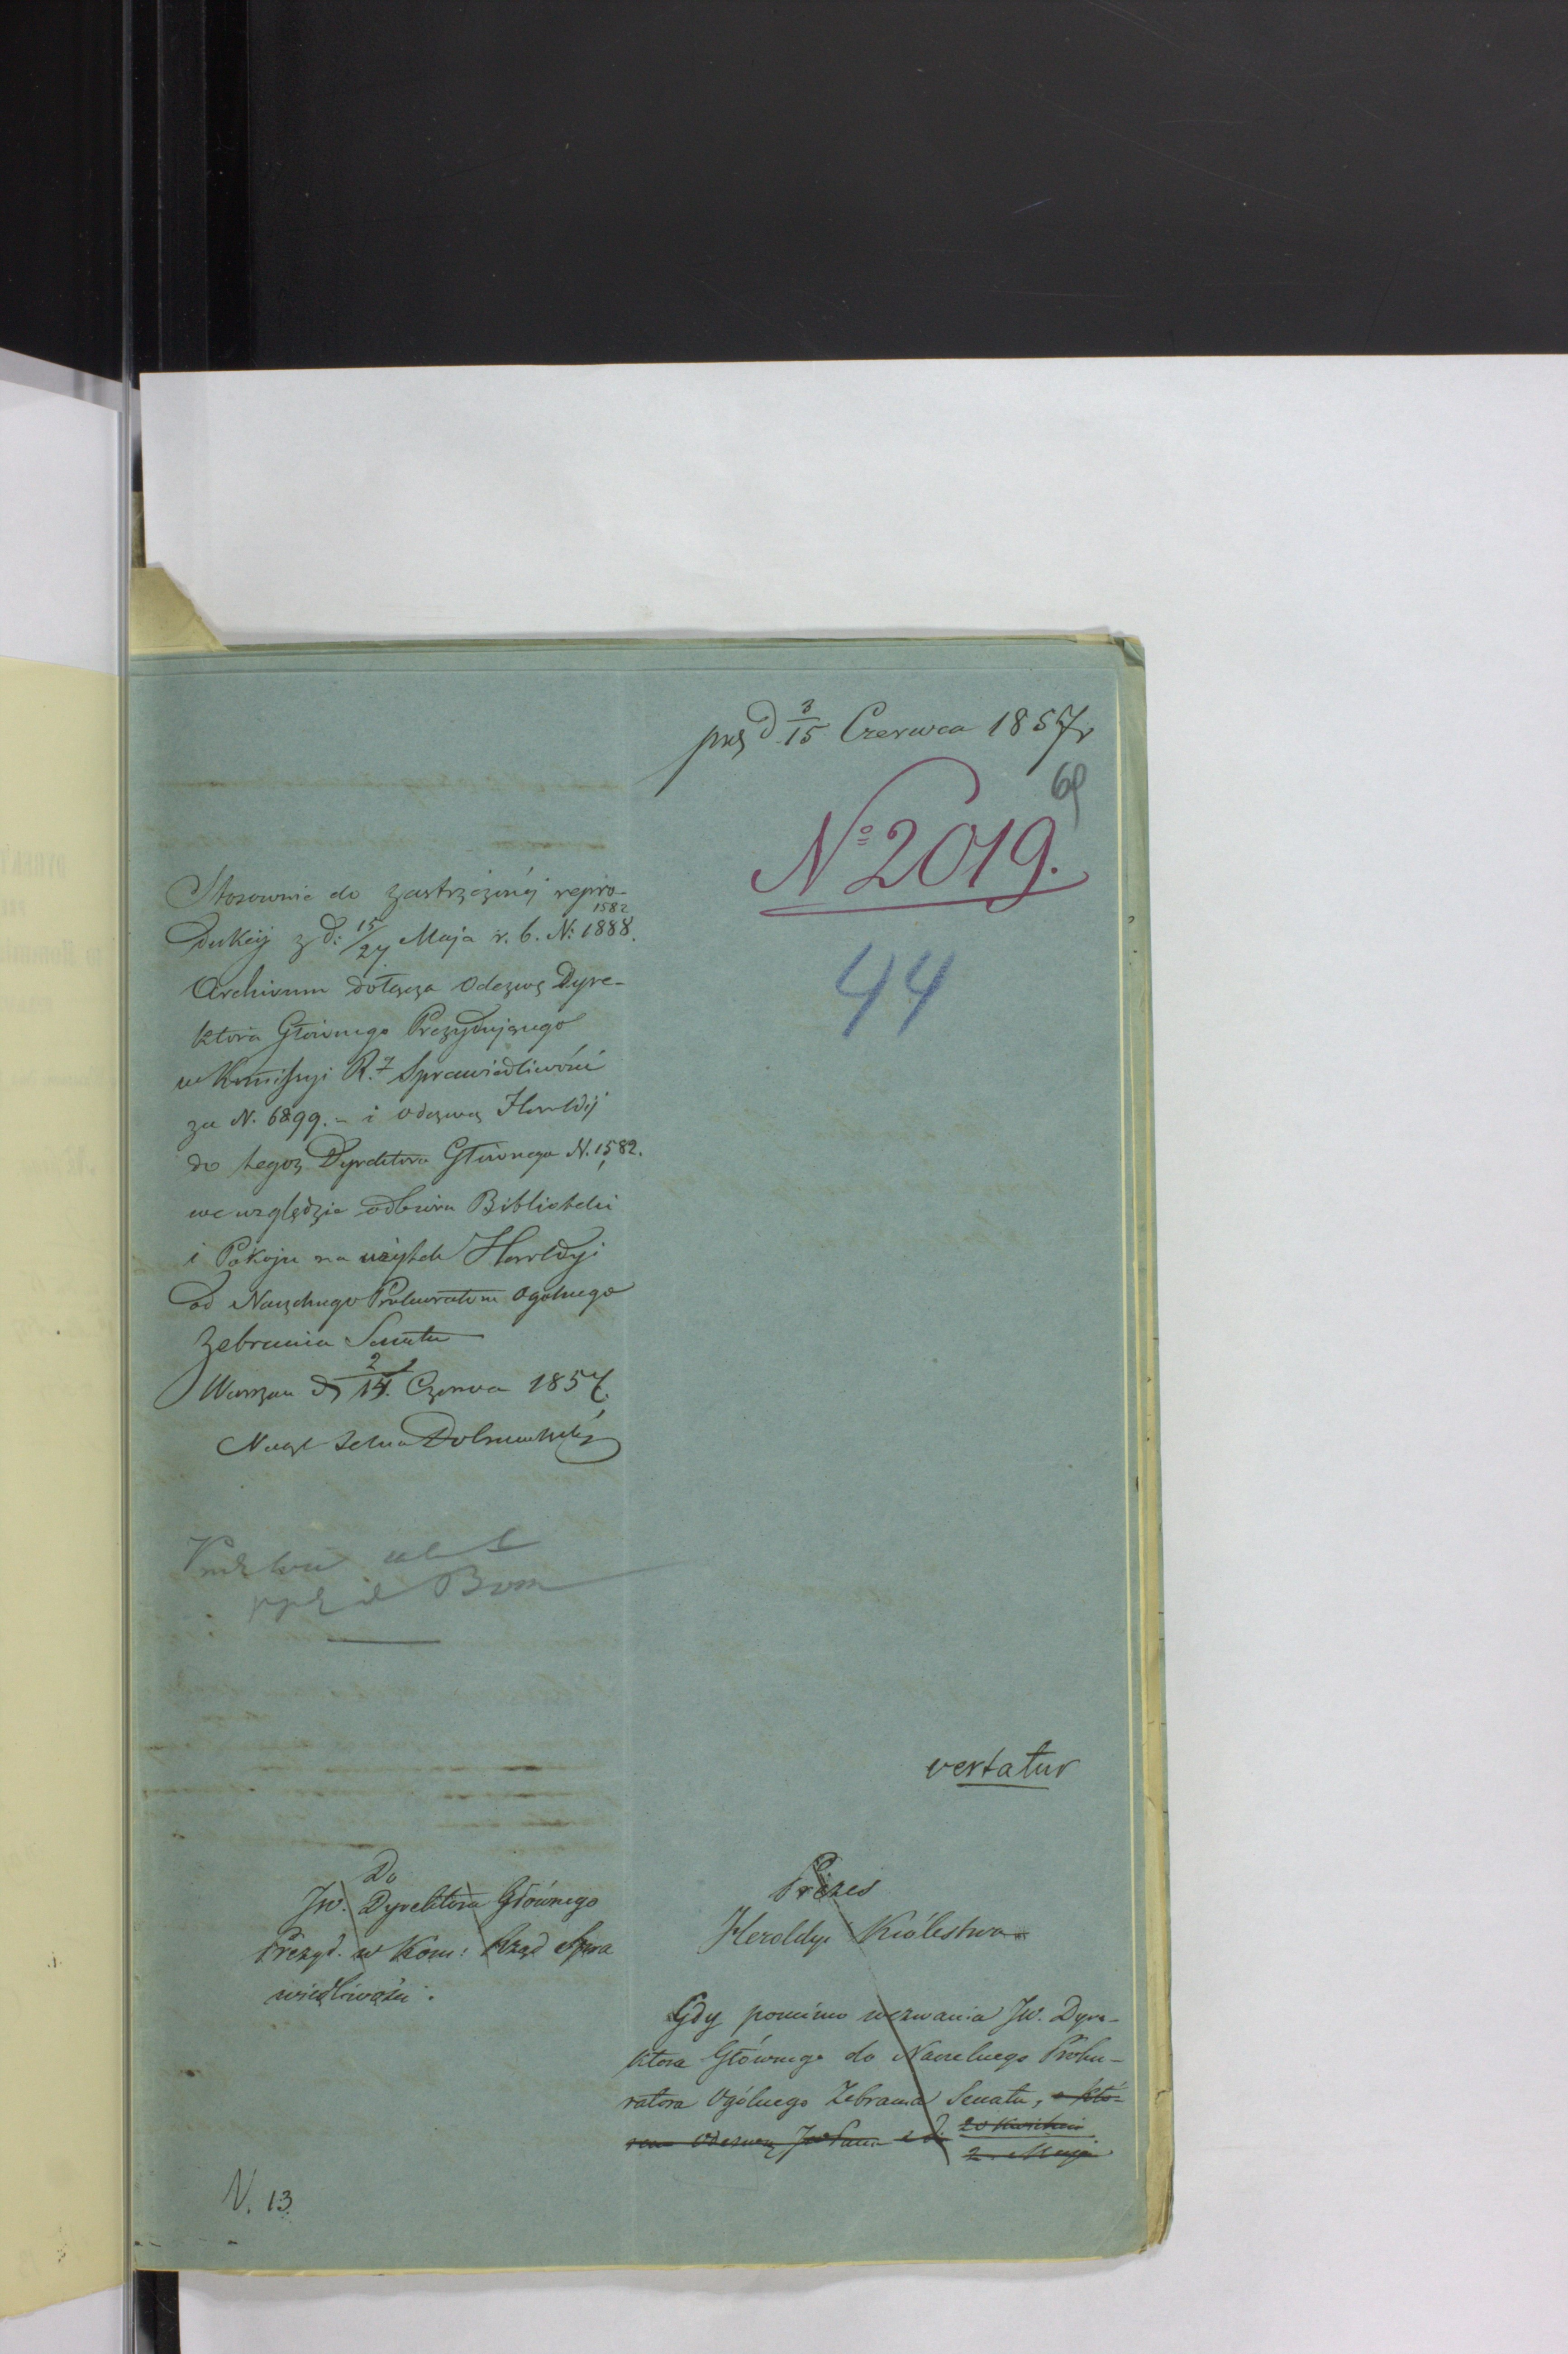 d 3/15 Czerwca 1857 r
69
No 2019.
44
Stosownie do zastrzeżonéj repro-
1582
dukcij z d: 15/27 Maja r. b. N: 1888.
Archiwum dołącza Odezwę Dyre-
ktora Głównego Prezydującego
w Komissyi R. Sprawiedliwości
za N. 6899. - i odezwę Heroldij
do tegoż Dyrektora Głównego N. 1582.
we względzie odbioru Biblioteki
i Pokoju na użytek Heroldyi
od Naczelnego Prokuratora Ogólnego
Zebrania Senatu
Warszawa d 2/14. Czerwca 1857.
vertatur
Do
JW. Dyrektora Głównego
Prezyd. w Kom: Rząd Spra
wiedliwości.
Prezes
Heroldyi Królestwa
Gdy pomimo wezwania JW. Dyre-
ktora Głównego do Naczelnego Proku-
ratora Ogólnego Zebrania Senatu, o któ-
rem odezwą JW Pana z d. 20 Kwietnia
2. Maja
N. 13.